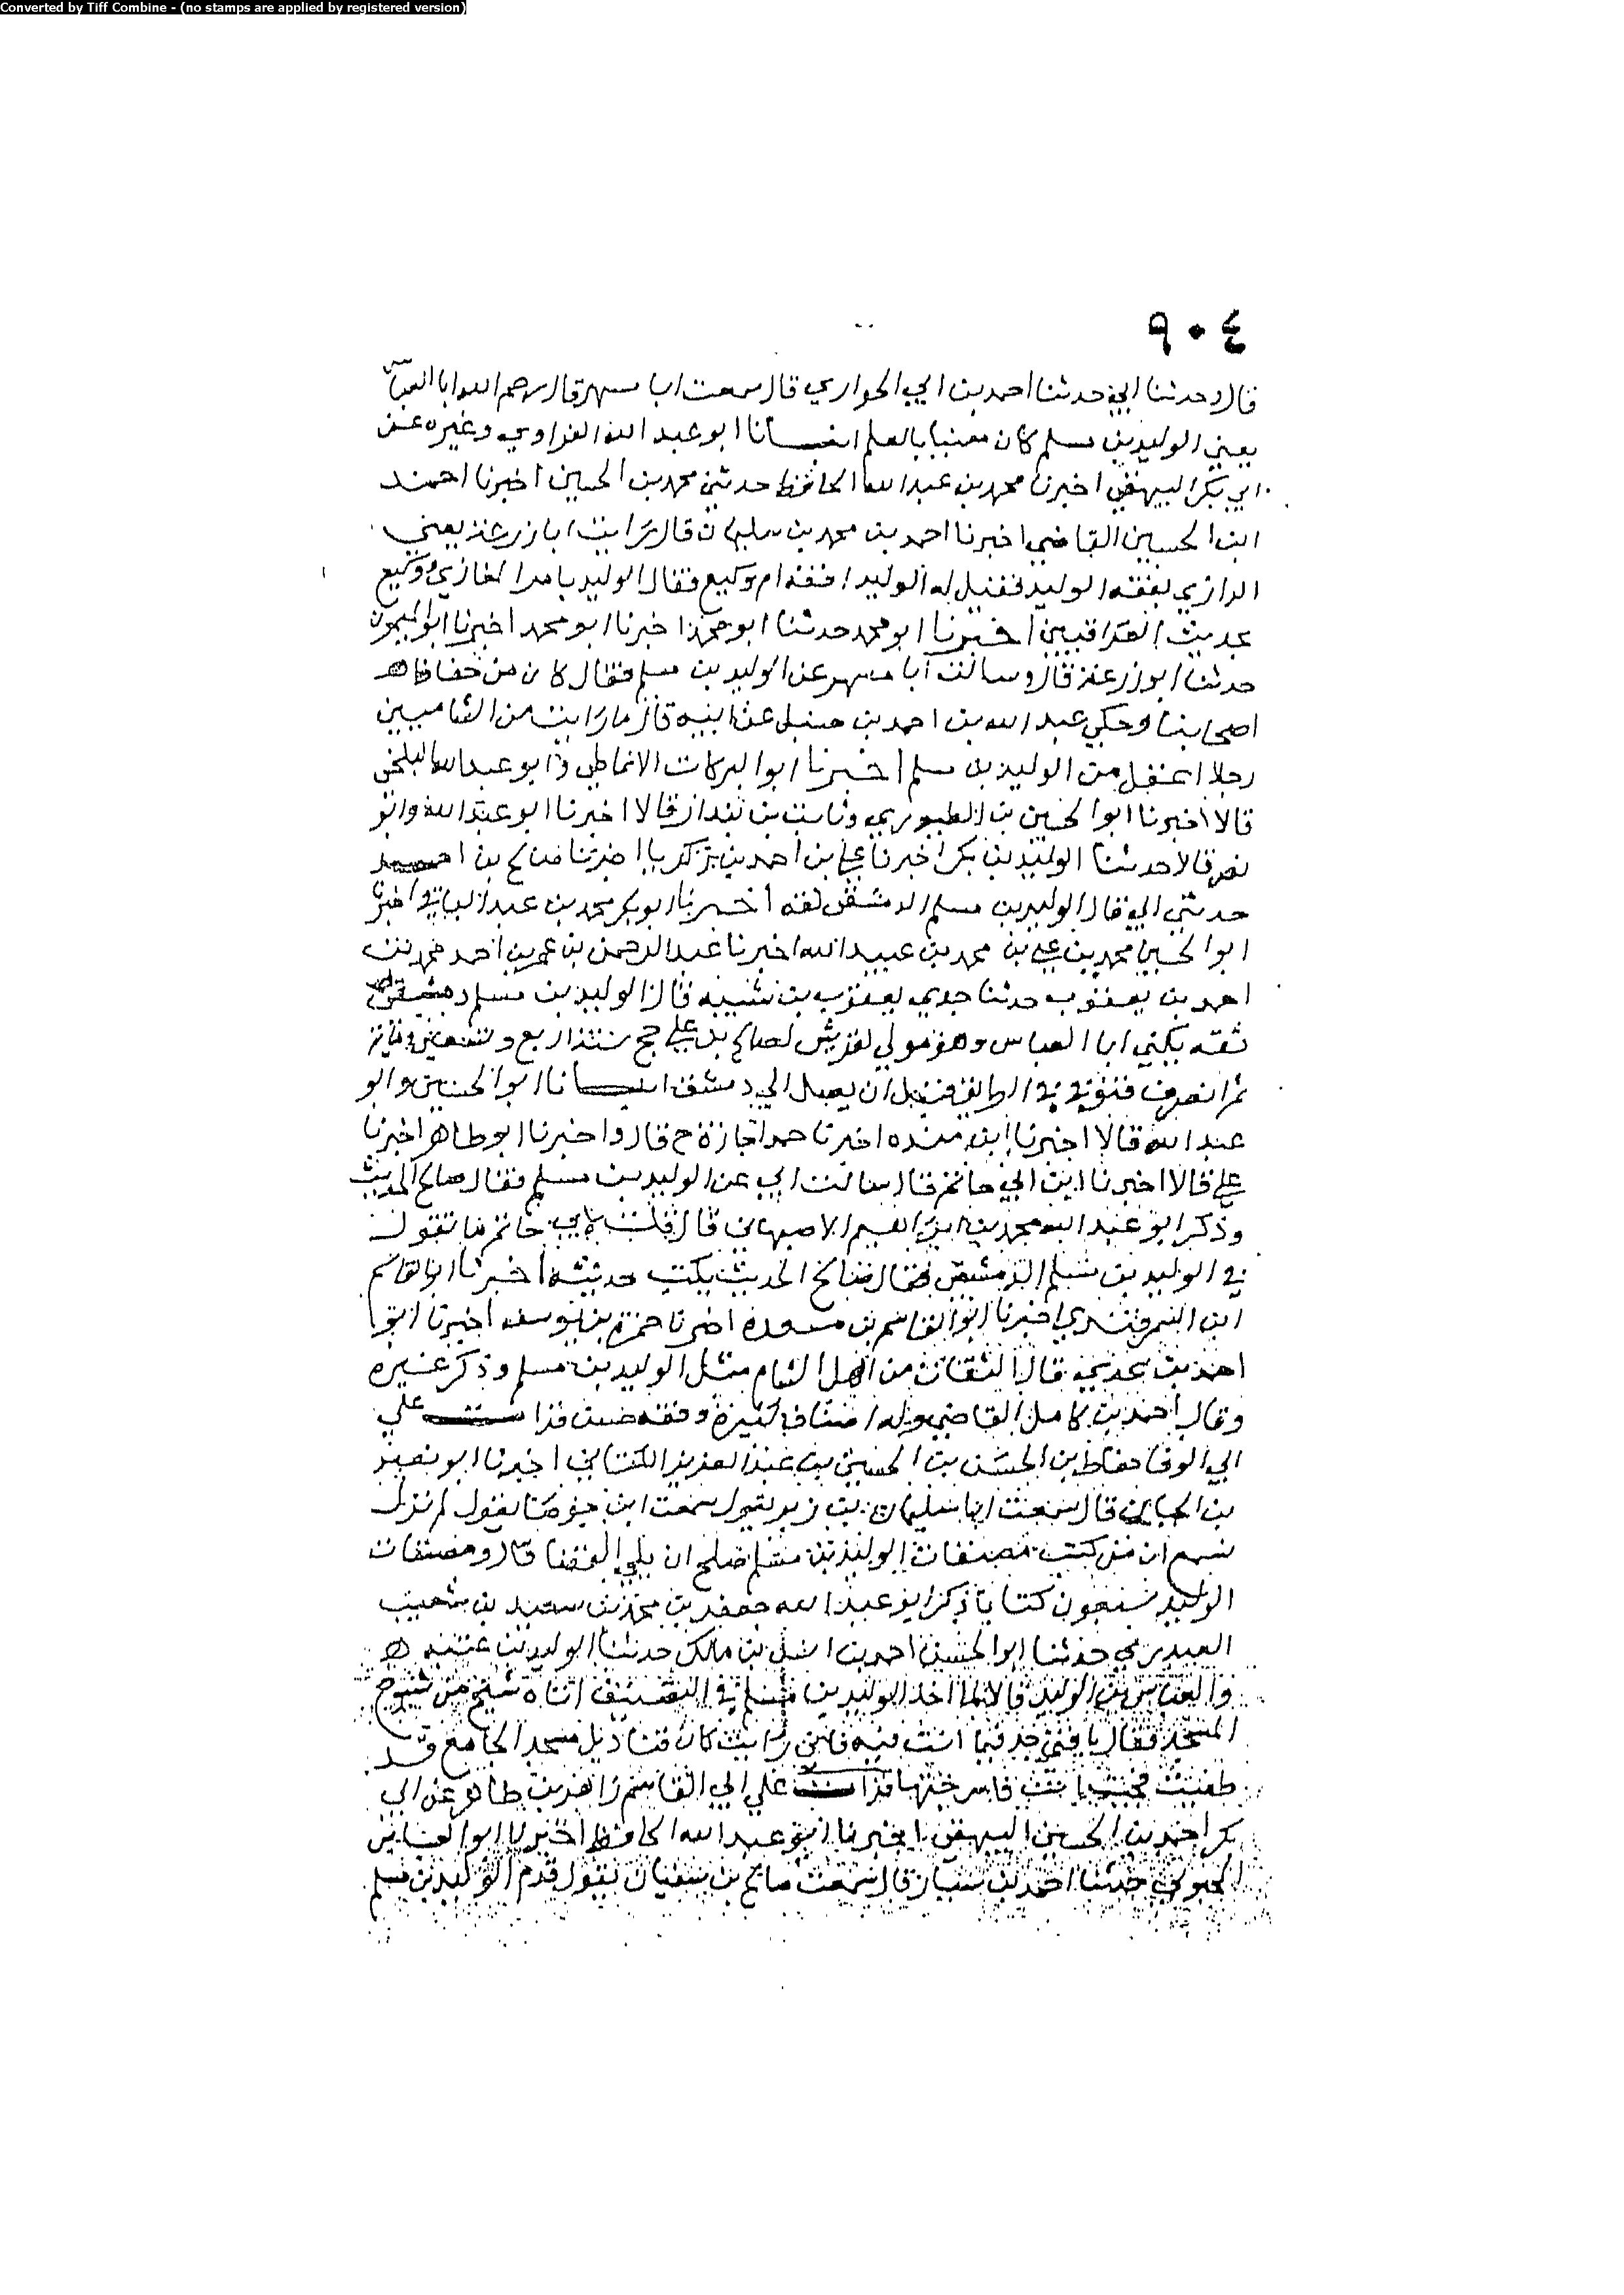 Converted by Tiff Combine - (no stamps are applied by registered version)
٩٠٤
قال وحدثنا ابي حدثنا احمد بن ابي الحواري قال سمعت ابا مسهر قال رحم الله ابا العباس
يعني الوليد بن مسلم كان معنيا بالعلم انبانا ابو عبد الله الفراوي وغيره عن
ابي بكر البيهقي اخبرنا محمد بن عبد الله الحافظ حدثني محمد بن الحسين اخبرنا احمد
ابن الحسين القاضي اخبرنا احمد بن محمد بن سليمان قال رايت ابا زرعة يعني
الرازي يفقه الوليد فقيل له الوليد افقه ام وكيع فقال الوليد بامر المغازي ووكيع
بحديث العراقيين اخبرنا ابو محمد حدثنا ابو محمد اخبرنا ابو محمد اخبرنا ابو الميمون
حدثنا ابو زرعة قال وسالت ابا مسهر عن الوليد بن مسلم فقال كان من حفاظ
اصحابنا وحكي عبد الله بن احمد بن حنبل عن ابيه قال ما رايت من الشاميين
رجلا اعقل من الوليد بن مسلم اخبرنا ابو البركات الانماطي وابو عبد الله البلخي
قالا اخبرنا ابو الحسين بن الطيوري وثابت بن بندار قالا اخبرنا ابو عبد الله وابو
نصر قالا حدثنا الوليد بن بكر اخبرنا علي بن احمد بن زكريا اخبرنا صالح بن احمد
حدثني ابي قال الوليد بن مسلم الدمشقي ثقة اخبرنا ابو بكر محمد بن عبد الباقي اخبرنا
ابو الحسين محمد بن علي بن محمد بن عبيد الله اخبرنا عبد الرحمن بن عمر بن احمد محمد بن
احمد بن يعقوب حدثنا جدي يعقوب بن شيبه قال الوليد بن مسلم دمشقي
ثقه يكني ابا العباس وهو مولي لقريش لصالح بن علي حج سنة اربع وتسعين وماية
ثم انصرف فتوفي في الطريق قبل ان يصل الي دمشق انبانا ابو الحسين وابو
عبد الله قالا اخبرنا ابن منده اخبرنا حمد اجازة ح قال واخبرنا ابو طاهر اخبرنا
علي قالا اخبرنا ابن ابي حاتم قال سالت ابي عن الوليد بن مسلم فقال صالح الحديث
وذكر ابو عبد الله محمد بن ابراهيم الاصبهاني قال قلت لابي حاتم ما تقول
في الوليد بن مسلم الدمشقي فقال صالح الحديث يكتب حديثه اخبرنا ابو القاسم
ابن السمرقندي اخبرنا ابو القاسم بن مسعدة اخبرنا حمزة بن يوسف اخبرنا ابو
احمد بن عدي قال الثقات من اهل الشام مثل الوليد بن مسلم وذكر غيره
وقال احمد بن كامل القاضي وله اصناف كثيرة وفقه حسن قرات علي
ابي الوفا حفاظ بن الحسن بن الحسين عن عبد العزيز الكتاني اخبرنا ابو نصر
بن الجبان قال سمعت ابا سليمان بن زبر يقول سمعت ابن جوصا يقول لم نزل
نسمع ان من كتب مصنفات الوليد بن مسلم صلح ان يلي القضا قال ومصنفات
الوليد سبعون كتابا ذكر ابو عبد الله جعفر بن محمد بن سعيد بن شعيب
العبدري حدثنا ابو الحسين احمد بن انس بن مالك حدثنا الوليد بن عتبه
والعباس بن الوليد قالا لما اخذ الوليد بن مسلم في التصنيف اتاه شيخ من شيوخ
المسجد فقال يا فتي خذ فيما انت فيه فاني رايت كان قناديل مسجد الجامع قد
طفيت فجيت انت فاسرجتها قرات علي ابي القاسم زاهر بن طاهر عن ابي
بكر احمد بن الحسين البيهقي اخبرنا ابو عبد الله الحافظ اخبرنا ابو العباس
المحبوبي حدثنا احمد بن سيار قال سمعت صالح بن سفيان يقول قدم الوليد بن مسلم